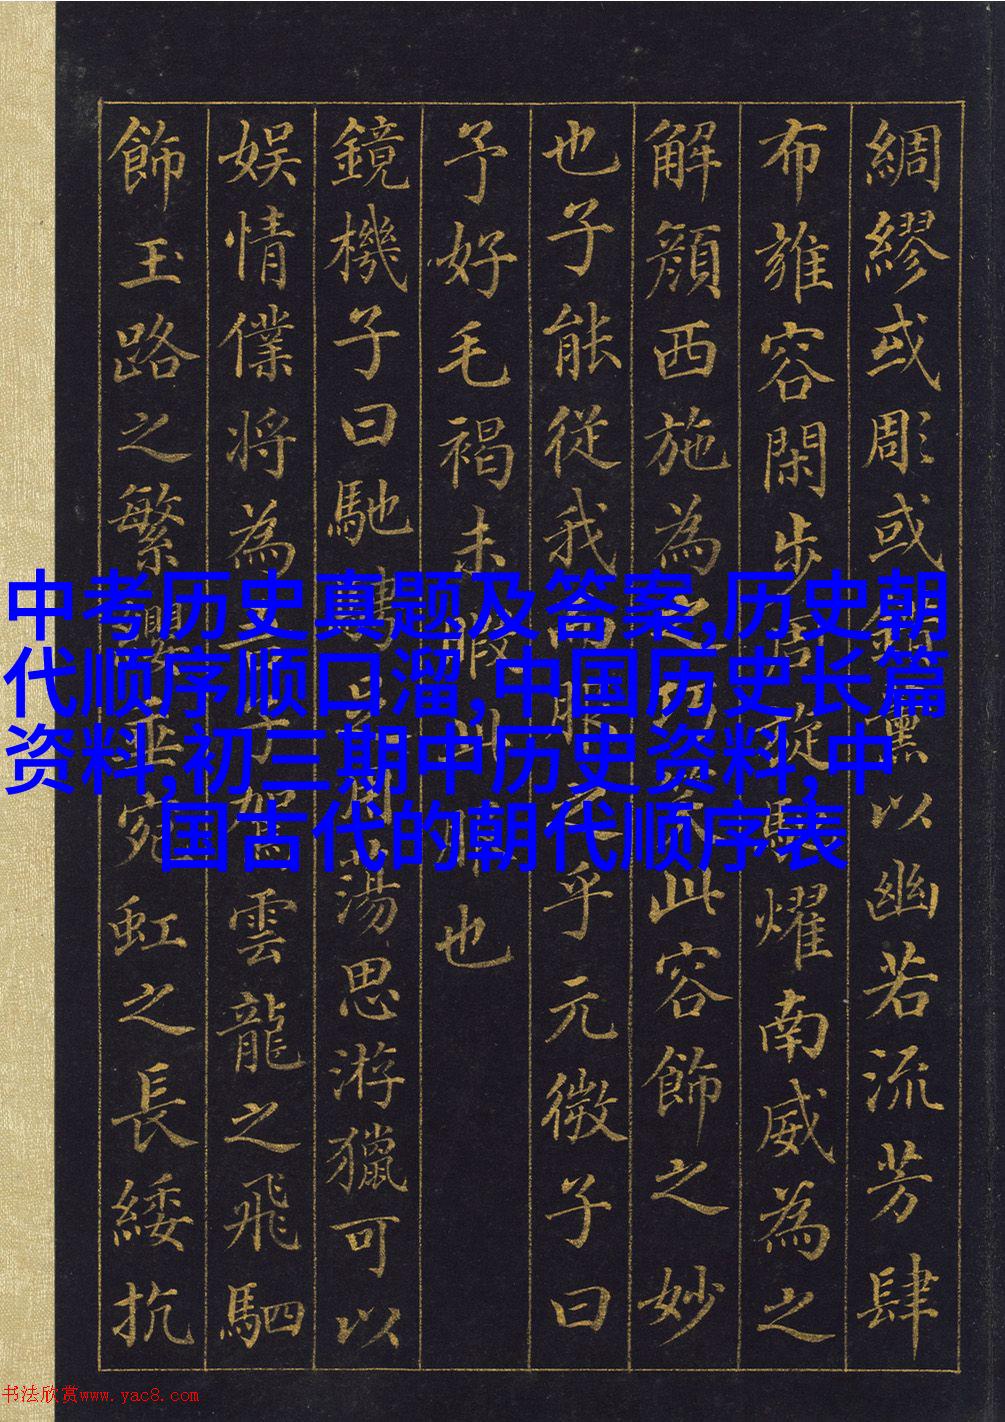 綢繆或彫或熏以幽若流芳肆
布雍容閑步周旋馳耀南威為之
解顏西施為之巧笑此容飾之妙
也子能從我而服之乎元微子曰
予好毛褐未暇此服也
鏡機子曰馳騁足用蕩思游獵可以
娛情僕將為吾子駕雲龍之飛駟
飾玉路之繁纓垂宛虹之長緌抗
中考历史真题及答案,历史朝
代顺序顺口溜,中国历史长篇
资料,初三期中历史资料,中
国古代的朝代顺序表
书法欣赏www.yac8.com